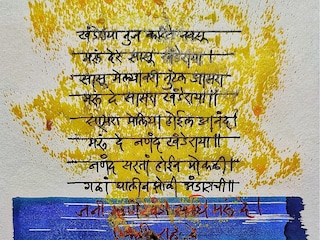 खंडेराया तुज करिते नवसू
मरू देरे सासू खंडेराया।
सासू मेल्यावरी तुटेल आसरा
मरू दे सासरा खंडेराया॥
सासरा मेलिया होईल आनंद
मरू दे नणंद खंडेराया॥
नणंद सरतां होईन मोकळी
गळा घालीन झोळी भंडाराची॥
जनी म्हणे मरू दे।